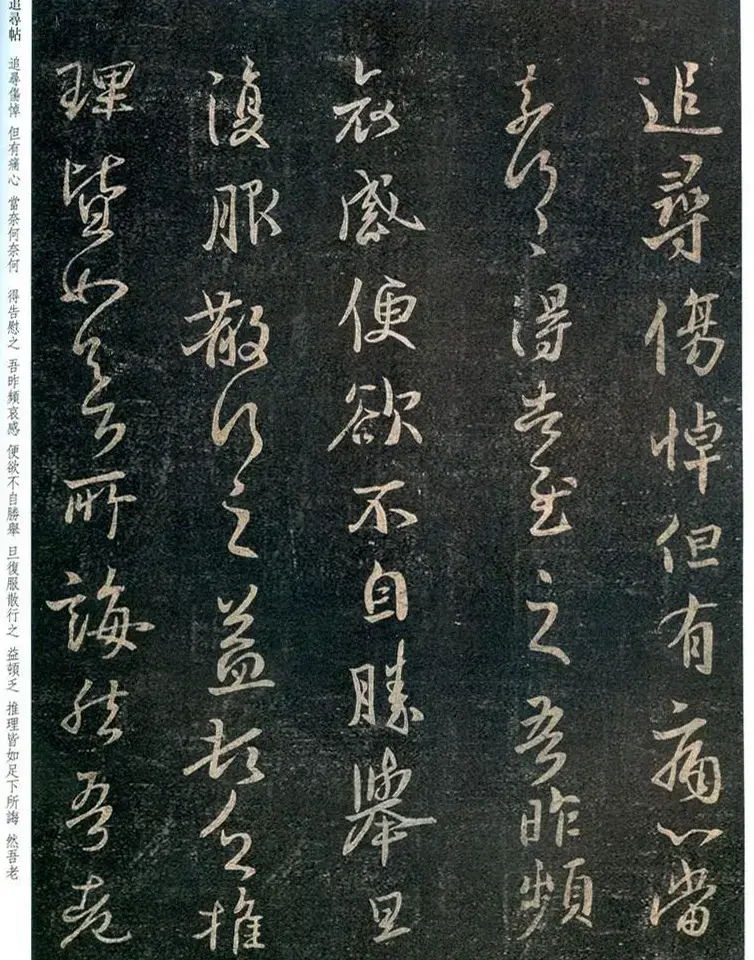 追尋傷悼但有痛心當
奈何奈何得告慰之吾昨頻
哀感便欲不自勝舉旦
復服散行之益頓乏推
理皆如足下所誨然吾老
追尋帖 追尋傷悼 但有痛心 當奈何奈何 得告慰之 吾昨頻哀感 便欲不自勝舉 旦復服散行之 益頓乏 推理皆如足下所誨 然吾老